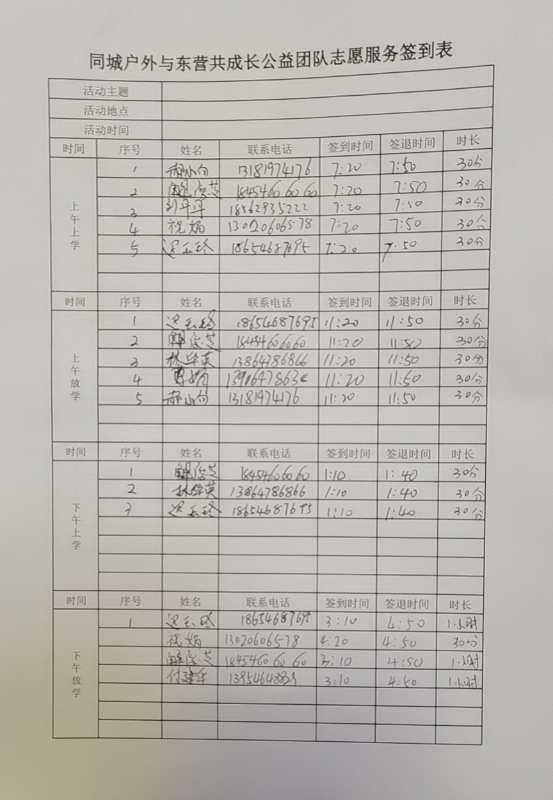 同城户外与东营共成长公益团队志愿服务签到表
活动主题
活动地点
活动时间
时间 序号 姓名 联系电话 签到时间 签退时间 时长
上午上学
1 13181974176 7:20 7:50 30分
2 18454606060 7:20 7:50 30分
3 18562935222 7:20 7:50 30分
4 祝娟 13020606578 7:20 7:50 30分
5 18654687695 7:20 7:50 30分
时间 序号 姓名 联系电话 签到时间 签退时间 时长
上午放学
1 18654687695 11:20 11:50 30分
2 18454606060 11:20 11:50 30分
3 林华英 13864786866 11:20 11:50 30分
4 11:20 11:50 30分
5 13181974176 11:20 11:50 30分
时间 序号 姓名 联系电话 签到时间 签退时间 时长
下午上学
1 18454606060 1:10 1:40 30分
2 林华英 13864786866 1:10 1:40 30分
3 18654687695 1:10 1:40 30分
时间 序号 姓名 联系电话 签到时间 签退时间 时长
下午放学
1 3:10 4:50
祝娟 13020606578 4:20 4:50 30分
18454606060 3:10 4:50
3:10 4:50